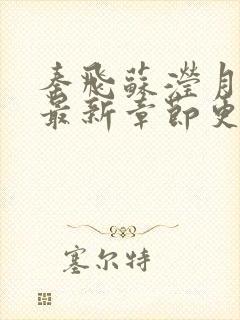 秦飛蘇瀅月
最新章節更
塞尔特